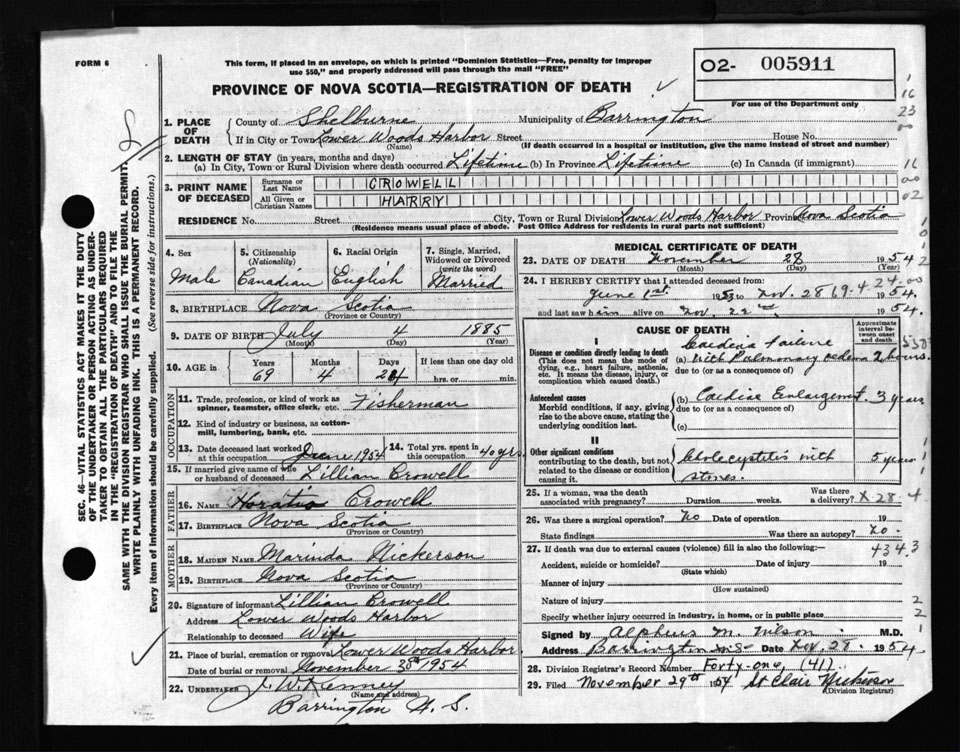 FORM 6
This form, if placed in an envelope, on which is printed "Dominion Statistics—Free, penalty for improper
use $50," and properly addressed will pass through the mail "FREE"
02- 005911
For use of the Department only
PROVINCE OF NOVA SCOTIA—REGISTRATION OF DEATH
1. PLACE OF DEATH
County of Shelburne Municipality of Barrington
If in City or Town Lower Woods Harbor Street House No.
(Name) (If death occurred in a hospital or institution, give the name instead of street and number)
2. LENGTH OF STAY (in years, months and days)
(a) In City, Town or Rural Division where death occurred Lifetime (b) In Province Lifetime (c) In Canada (if immigrant)
3. PRINT NAME OF DECEASED
Surname or Last Name CROWELL
All Given or Christian Names HARRY
RESIDENCE No. Street City, Town or Rural Division Lower Woods Harbor Province Nova Scotia
(Residence means usual place of abode. Post Office Address for residents in rural parts not sufficient)
4. Sex Male
5. Citizenship (Nationality) Canadian
6. Racial Origin English
7. Single, Married, Widowed or Divorced (write the word) Married
8. BIRTHPLACE Nova Scotia
(Province or Country)
9. DATE OF BIRTH July 4 1885
(Month) (Day) (Year)
10. AGE in Years Months Days If less than one day old
69 4 24 hrs. or min.
OCCUPATION
11. Trade, profession, or kind of work as
spinner, teamster, office clerk, etc. Fisherman
12. Kind of industry or business, as cotton-
mill, lumbering, bank, etc.
13. Date deceased last worked at this occupation June 1954
14. Total yrs. spent in this occupation 40 yrs
15. If married give name of wife
or husband of deceased Lillian Crowell
FATHER
16. NAME Horatio Crowell
17. BIRTHPLACE Nova Scotia
(Province or Country)
MOTHER
18. MAIDEN NAME Marinda Nickerson
19. BIRTHPLACE Nova Scotia
(Province or Country)
20. Signature of informant Lillian Crowell
Address Lower Woods Harbor
Relationship to deceased Wife
21. Place of burial, cremation or removal Lower Woods Harbor
Date of burial or removal November 30 1954
22. UNDERTAKER J. W. Kenney
(Name and address)
Barrington N. S.
MEDICAL CERTIFICATE OF DEATH
23. DATE OF DEATH November 28 1954
(Month) (Day) (Year)
24. I HEREBY CERTIFY that I attended deceased from:
June 1st 1953 to Nov. 28 1954
and last saw him alive on Nov. 22nd 1954.
CAUSE OF DEATH
Approximate interval between onset and death
I
Disease or condition directly leading to death
(This does not mean the mode of
dying, e.g., heart failure, asthenia,
etc. It means the disease, injury, or
complication which caused death.)
Cardiac Failure
(a) with Pulmonary oedema 2 hours.
due to (or as a consequence of)
Antecedent causes
Morbid conditions, if any, giving
rise to the above cause, stating the
underlying condition last.
(b) Cardiac Enlargement 3 years
due to (or as a consequence of)
(c)
II
Other significant conditions
contributing to the death, but not
related to the disease or condition
causing it.
Cholecystitis with stones. 5 years
25. If a woman, was the death associated with pregnancy? Duration weeks. Was there a delivery?
26. Was there a surgical operation? No Date of operation 19
State findings Was there an autopsy? No.
27. If death was due to external causes (violence) fill in also the following:—
Accident, suicide or homicide? Date of injury 19
(State which)
Manner of injury
(How sustained)
Nature of injury
Specify whether injury occurred in industry, in home, or in public place
Signed by Alpheus M. Wilson M.D.
Address Barrington N.S. Date Nov. 28. 1954
28. Division Registrar's Record Number Forty-one, (41).
29. Filed November 29th 1954 St Clair Nickerson
(Division Registrar)
SEC. 46—VITAL STATISTICS ACT MAKES IT THE DUTY
OF THE UNDERTAKER OR PERSON ACTING AS UNDER-
TAKER TO OBTAIN ALL THE PARTICULARS REQUIRED
IN THE "REGISTRATION OF DEATH" AND TO FILE THE
SAME WITH THE DIVISION REGISTRAR WHO SHALL ISSUE THE BURIAL PERMIT.
WRITE PLAINLY WITH UNFADING INK. THIS IS A PERMANENT RECORD.
Every item of information should be carefully supplied. (See reverse side for instructions.)